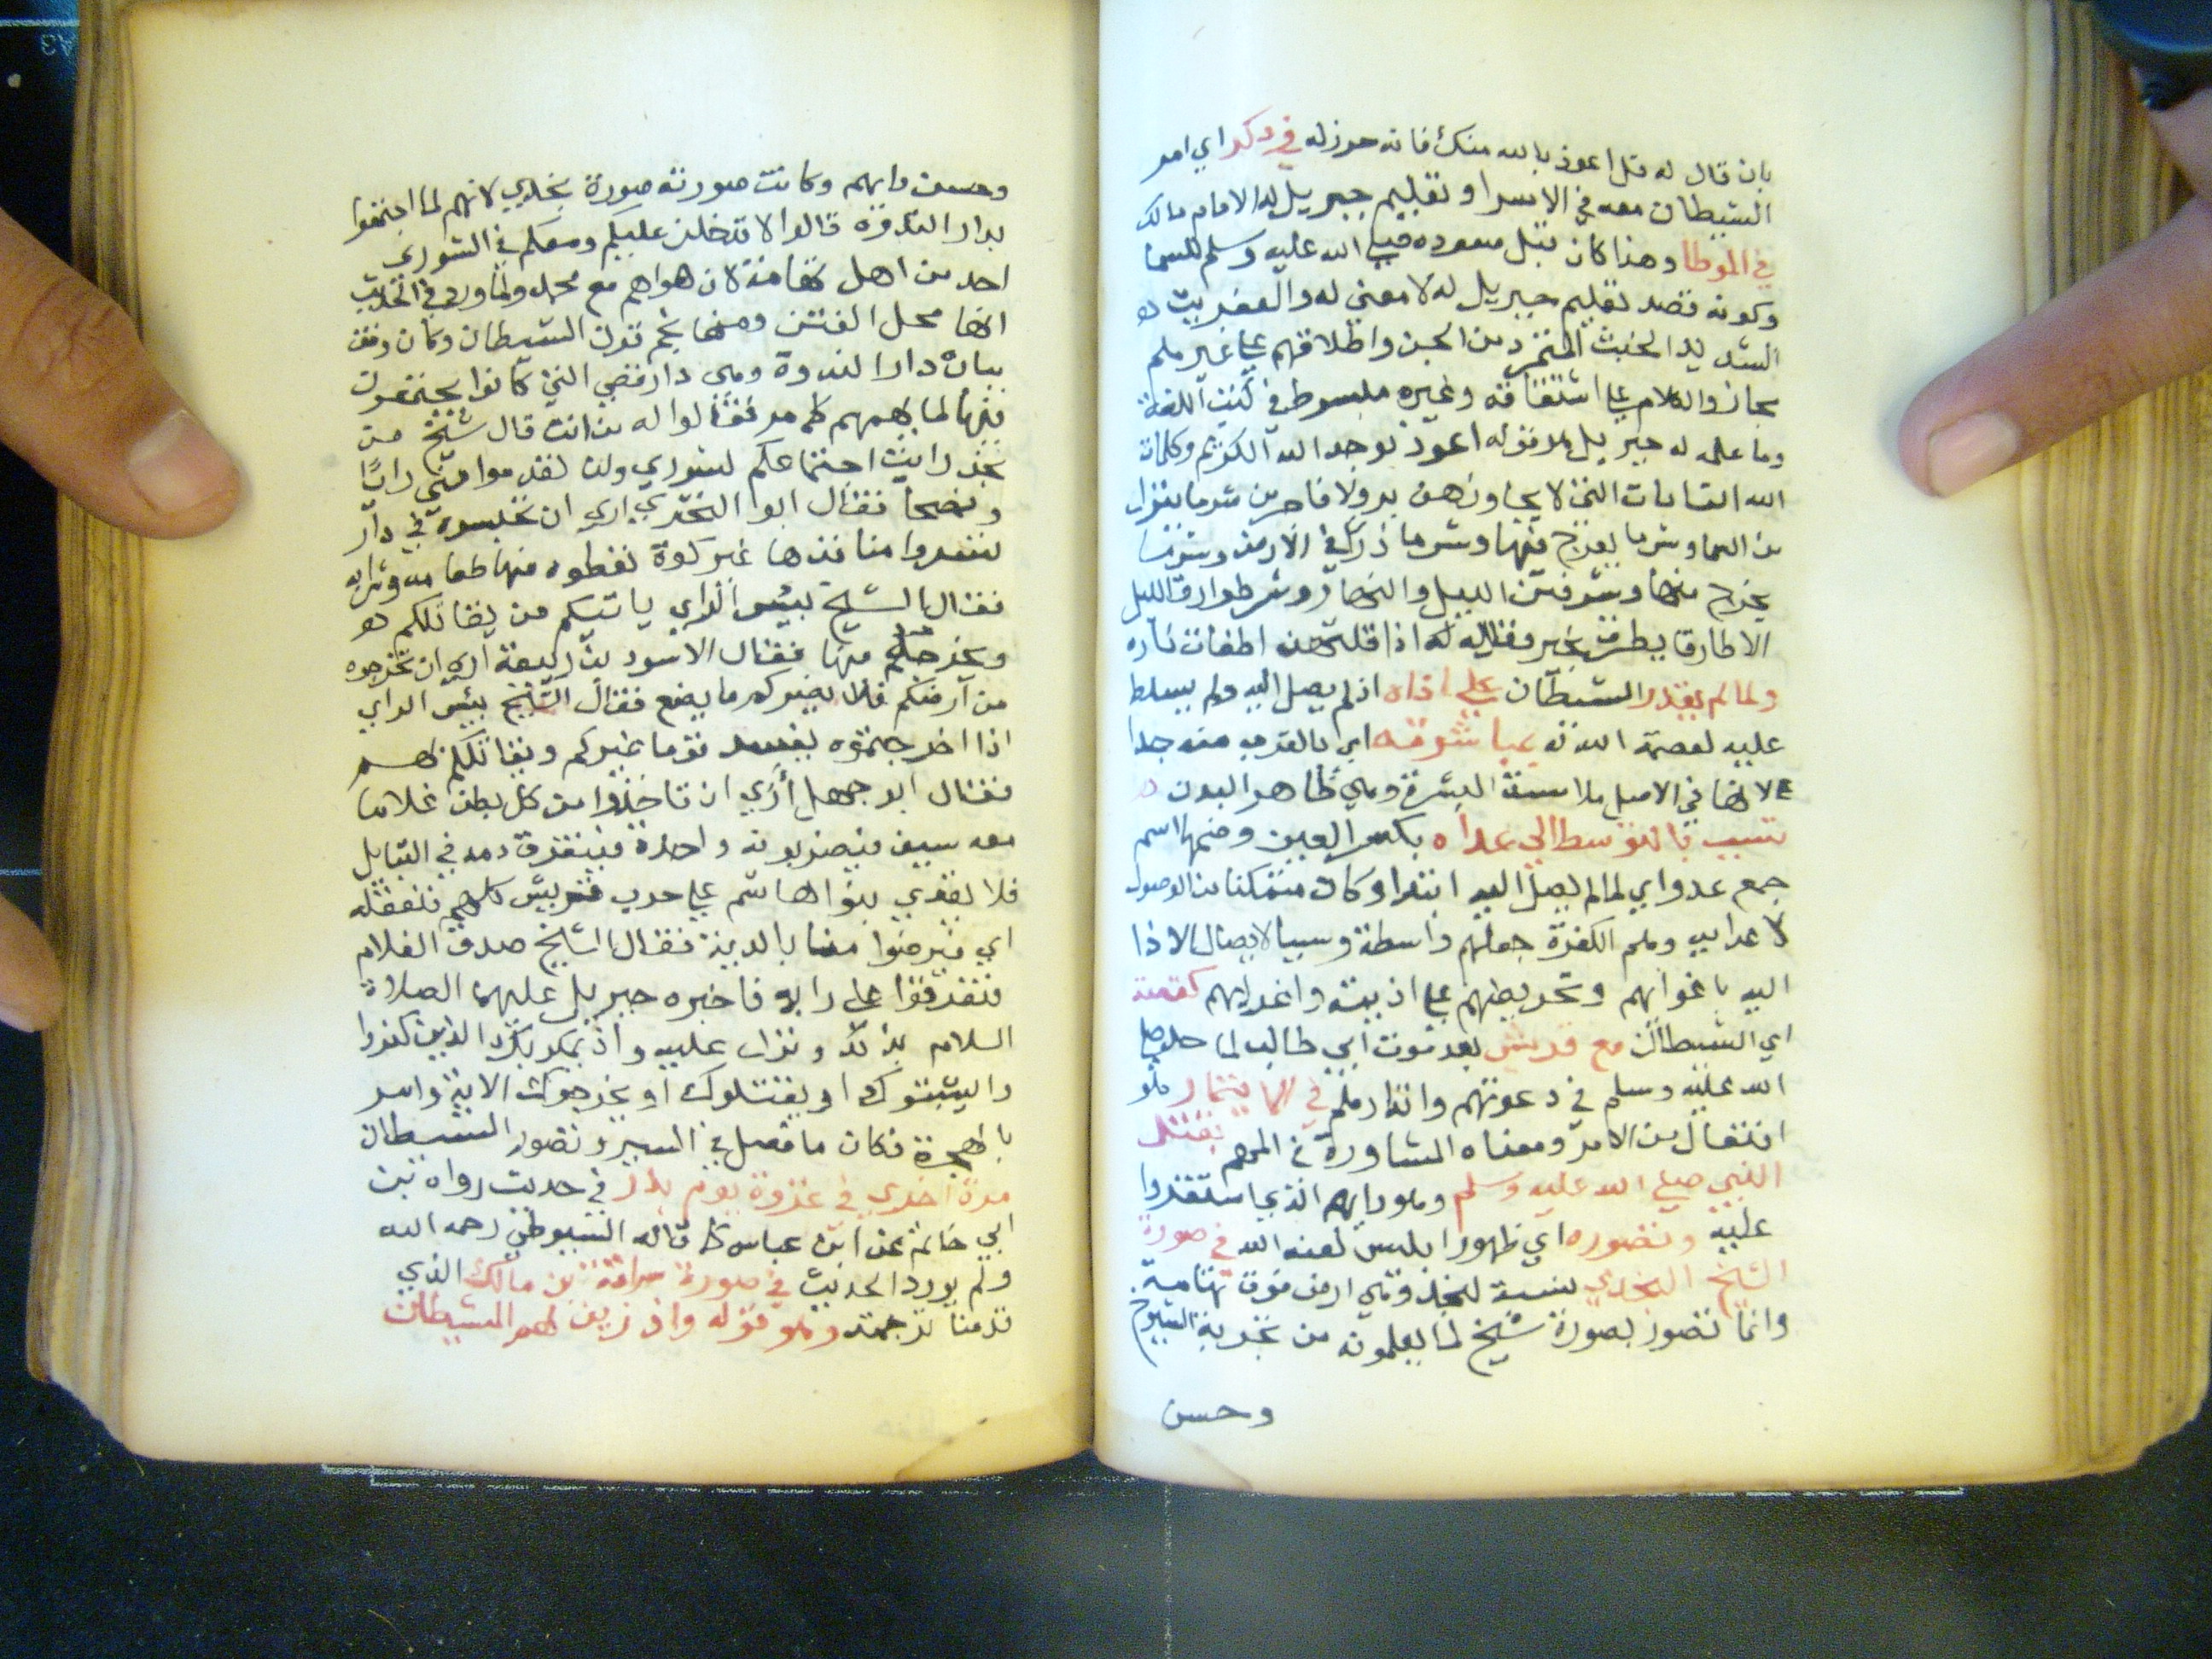 بان قال له قل اعوذ بالله منك فانه حرز له في ذكر اي امر
الشيطان معه في الاسرا وتعليم جبريل له الامام مالك
في الموطا وهذا كان قبل صعوده صلى الله عليه وسلم للسما
وكونه قصد تعليم جبريل له لا معنى له والعفريت هو
الشديد الخبث المتمرد من الجن واطلاقهم على غيرهم
مجاز والكلام على اشتقاقه وغيره مبسوط في كتب اللغة
وما علمه له جبريل هو قوله اعوذ بوجه الله الكريم وكلمات
الله التامات التي لا يجاوزهن بر ولا فاجر من شر ما ينزل
من السما وشر ما يعرج فيها وشر ما ذرا في الارض وشر ما
يخرج منها وشر فتن الليل والنهار وشر طوارق الليل
الا طارقا يطرق بخير وقال له اذا قلتهن اطفات ناره
ولما لم يقدر الشيطان على اذاه اذ لم يصل اليه ولم يسلط
عليه لعصمة الله له بمباشرته اي بالقرب منه جدا
لانها في الاصل ملامسة البشرة وهي ظاهر البدن
تسبب بالتوسط الى عداه بكسر العين وضمها اسم
جمع عدو اي لما لم يصل اليه ابتدا وكان متمكنا من الوصول
لاعدايه وهم الكفرة جعلهم واسطة وسببا لايصال الاذا
اليه باغوايهم وتحريضهم على اذيته واغرايهم كقصته
اي الشيطان مع قريش بعد موت ابي طالب لما صلى
الله عليه وسلم في دعوتهم وانذارهم في الايتمار هو
افتعال من الامر ومعناه المشاورة في المهم بقتل
النبي صلى الله عليه وسلم وهو رايهم الذي استقروا
عليه وتصوره اي ظهور ابليس لعنه الله في صورة
الشيخ النجدي نسبة لنجد وهي ارض فوق تهامة
وانما تصور بصورة شيخ لما يعلمونه من تجربة الشيوخ
وحسن
وحسن رايهم وكانت صورته صورة نجدي لانهم لما اجتمعوا
بدار الندوة قالوا لا تدخلن عليكم ومعكم في الشورى
احد من اهل تهامة لان هواهم مع محمد ولما ورد في الحديث
انها محل الفتن ومنها نجم قرن الشيطان وكان وقف
بباب دار الندوة وهي دار قصي التي كانوا يجتمعون
فيها لما يهمهم كما مر فقالوا له من انت قال شيخ من
نجد رايت اجتماعكم لشوري ولن تعدموا مني رايا
ونصحا فقال ابو البختري ارى ان تحبسوه في دار
تسدوا منافذها غير كوة تعطوه منها طعامه وشرابه
فقال الشيخ بيس الراي ياتيكم من يقاتلكم هو
ويخرجه منها فقال الاسود بن ربيعة ارى ان تخرجوه
من ارضكم فلا يضركم ما يصنع فقال الشيخ بيس الراي
اذا اخرجتموه يفسد قوما غيركم ويقاتلكم بهم
فقال ابو جهل أرى ان تاخذوا من كل بطن غلاما
معه سيف فيضربونه واحدة فيتفرق دمه في القبايل
فلا يقوى بنو هاشم على حرب قريش كلهم فنعقله
اي فيرضوا منا بالدية فقال الشيخ صدق الغلام
فتفرقوا على رايه فاخبره جبريل عليهما الصلاة
السلام بذلك ونزل عليه واذ يمكر بك الذين كفروا
ليثبتوك او يقتلوك او يخرجوك الاية وامر
بالهجرة فكان ما فصل في السير وتصور الشيطان
مرة اخرى في غزوة يوم بدر في حديث رواه بن
ابي حاتم عن ابن عباس كما قاله السيوطي رحمه الله
ولم يورد الحديث في صورة سراقة بن مالك الذي
قدمنا ترجمته وهو قوله واذ زين لهم الشيطان